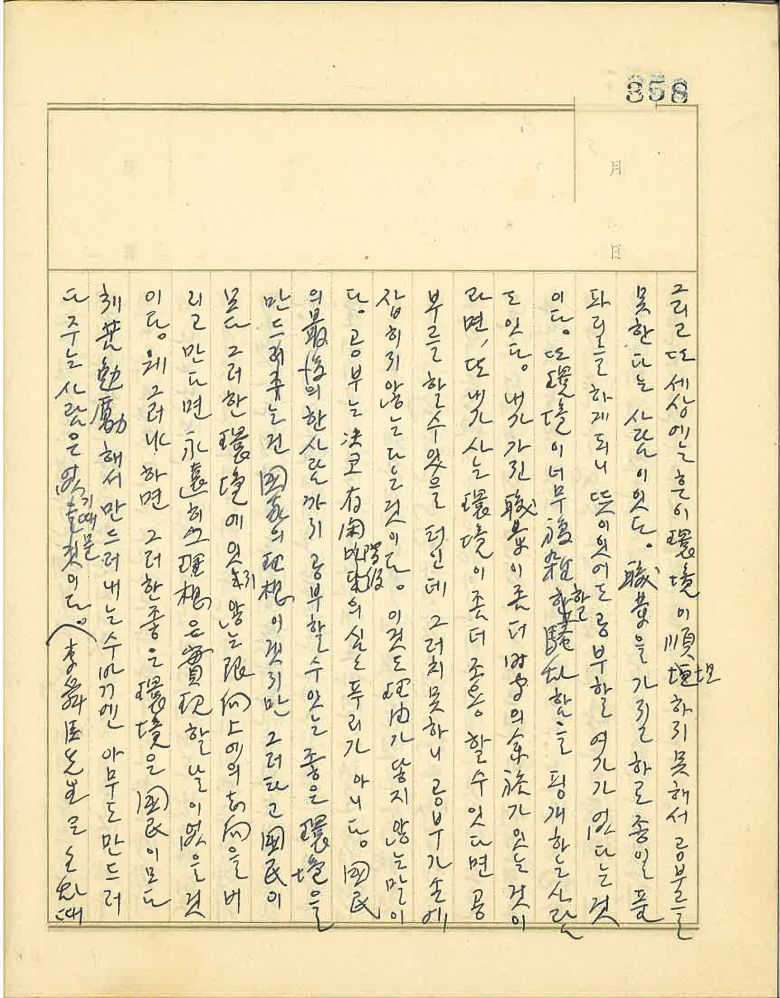 358
月
日
그리고 또 세상에는 흔이 環境이 順坦하지 못해서 공부를
못한다는 사람이 잇다. 職業을 가지고 하로 종일 품
파리를 하게 되니 뜻이 잇어도 공부할 여가가 없다는 것
이다. 또 環境이 너무 複雜 함을 핑게하는 사람
도 잇다. 내가 가진 職業이 좀 더 時間의 余裕가 잇는 것이
라면, 또 내가 사는 環境이 좀 더 조용할 수 잇다면 공
부를 할 수 있을 터인데 그러치 못하니 공부가 손에
잡히지 않는다는 것이다. 이것도 理由가 닿지 않는 말이
다. 공부는 決코 有閑 의 심심푸리가 아니다. 國民
의 最後의 한사람까지 공부할 수 잇는 좋은 環境을
만드러주는 건 國家의 理想이겟지만 그러타고 國民이
모다 그러한 環境에 잇지 않는 限 向上에의 志向을 버
리고 만다면 永遠히 그 理想은 實現할 날이 없을 것
이다. 웨그러냐 하면 그러한 좋은 環境은 國民이 모다
刻苦勉勵해서 만드러내는 수밖에 아무도 만드러
다 주는 사람은 없기 때문이다. (李舜臣先生도 소란때